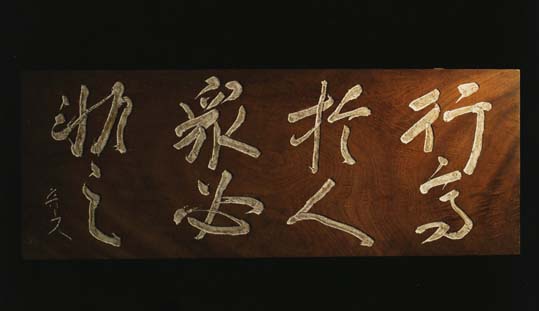 行高
於人
衆必
非之